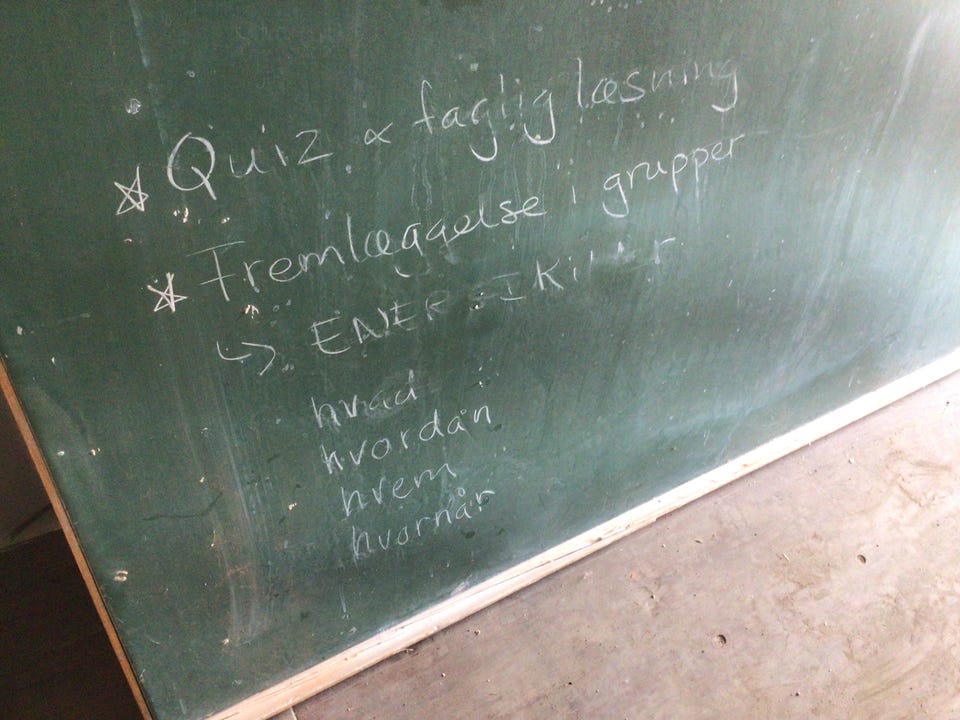 ☆ Quiz & faglig læsning
☆ Fremlæggelse i grupper
↳ ENERGIKilder
hvad
hvordan
hvem
hvornår